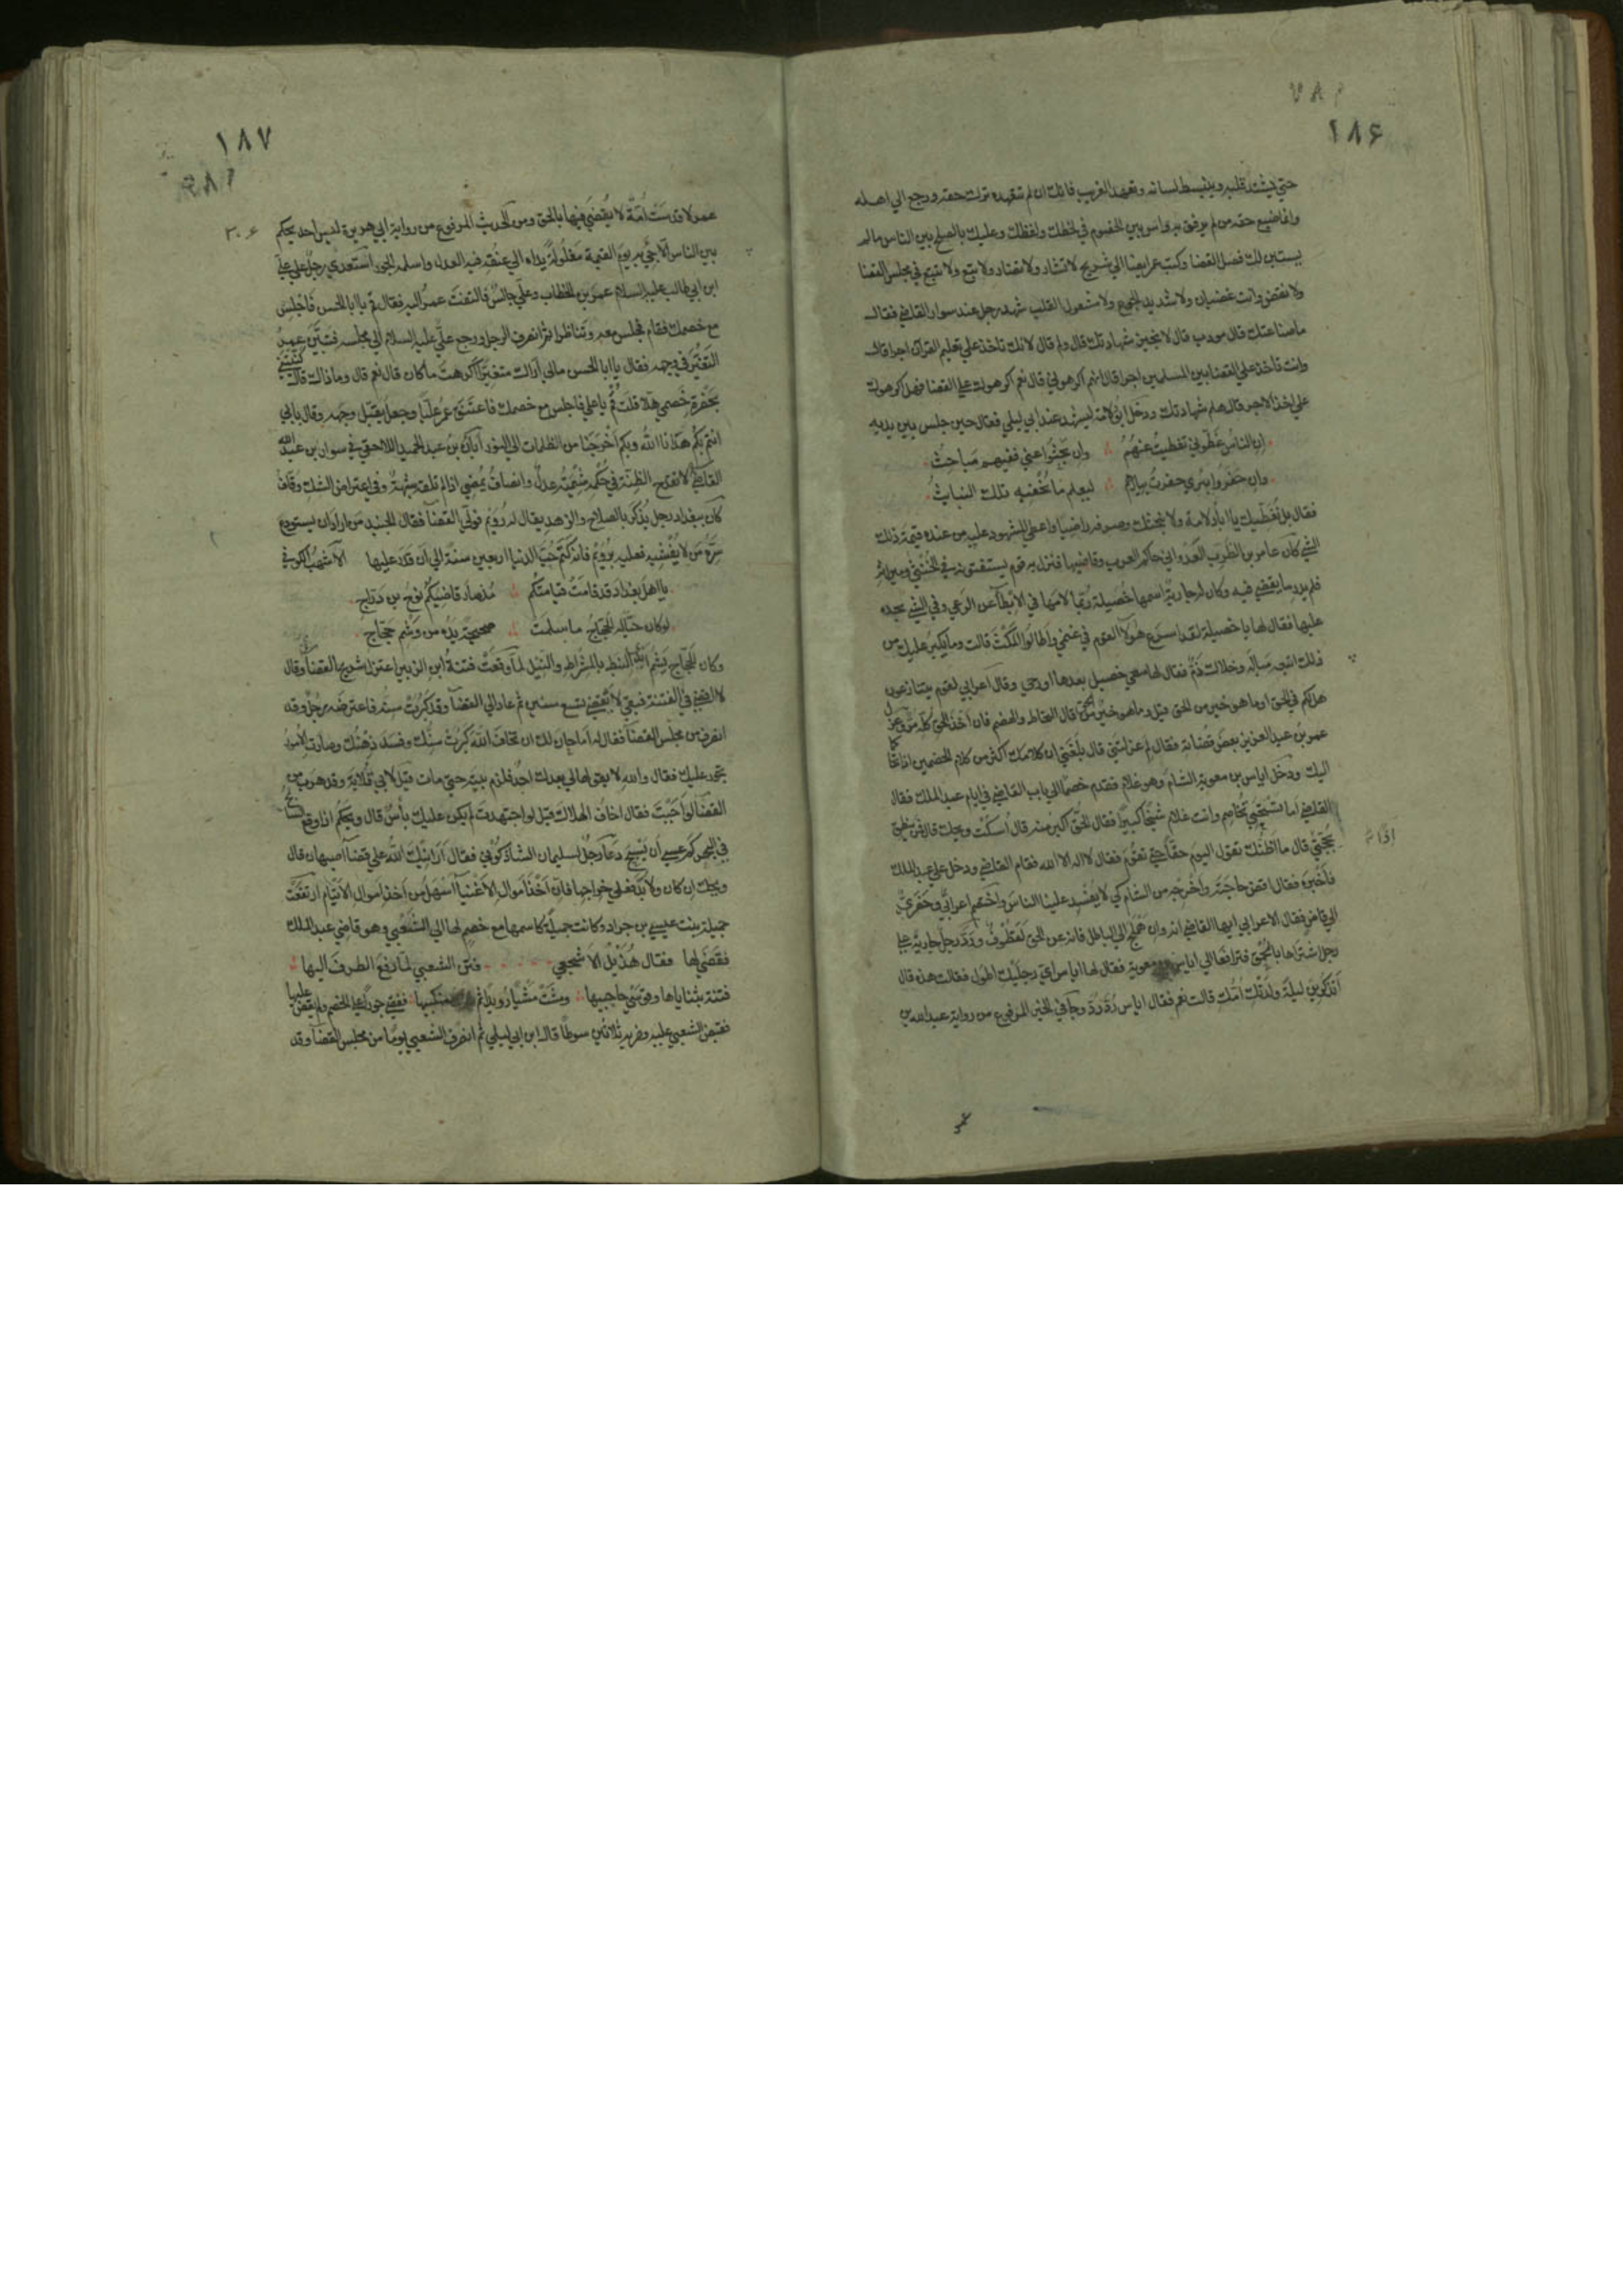 ١٨۶
حتي يشتد قلبه وينبسط لسانه وتعهد الغريب فانك ان لم تتعهده ترك حقه ورجع الي اهله
وانما ضيع حقه من لم يرفق به وآس بين الخصوم في لحظك ولفظك وعليك بالصلح بين الناس ما لم
يستبن لك فصل القضا وكتب عمر ايضا الي شريح لا تشاد ولا تضار ولا تبع ولا تبتع في مجلس القضا
ولا تقض وانت غضبان ولا شديد الجوع ولا مشغول القلب شهد رجل عند سوار القاضي فقال
ما صناعتك قال مودب قال لا نجيز شهادتك قال ولم قال لانك تاخذ علي تعليم القرآن اجرا قال
وانت تأخذ علي القضا بين المسلمين اجرا قال انهم اكرهوني قال نعم اكرهوك علي القضا فهل اكرهوك
علي اخذ الاجر قال هلم شهادتك ودخل ابو دلامة ليشهد عند ابي ليلي فقال حين جلس بين يديه
ان الناس غطوني تغطيت عنهم وان بحثوا عني ففيهم مباحث
وان حفروا بئري حفرت بيارهم ليعلم ما تخفيه تلك النبايث
فقال بل نغطيك يا ابا دلامة ولا نبحثك وصرفه راضيا واعطي المشهود عليه من عنده قيمة ذلك
الشي كان عامر بن الظرب العدواني حاكم العرب وقاضيها فنزل به قوم يستفتونه في الخنثي وميراثه
فلم يدر ما يقضي فيه وكان له جارية اسمها خصيلة ربما لامها في الابطآ عن الرعي وفي الشي يجده
عليها فقال لها يا خصيلة لقد اسرع هؤلآ القوم في غنمي واطالوا المكث قالت وما يكبر عليك من
ذلك اتبعه مباله وخلاك ذم فقال لها مسي خصيل بعدها او روحي وقال اعرابي لقوم يتنازعون
هل لكم في الحق او ما هو خير من الحق قيل وما هو خير من الحق قال التحاط والهضم فان اخذ الحق كله مر وعزل
عمر بن عبد العزيز بعض قضاته فقال لم عزلتني قال بلغني ان كلامك اكثر من كلام الخصمين اذا تحاكما
اليك ودخل اياس بن معوية الشام وهو غلام فقدم خصما الي باب القاضي في ايام عبد الملك فقال
القاضي اما تستحيي تخاصم وانت غلام شيخا كبيرا فقال الحق اكبر منه قال اسكت ويحك قال فمن ينطق
بحجتي قال ما اظنك تقول اليوم حقا حتي تقوم فقال لا اله الا الله فقام القاضي ودخل علي عبد الملك
فاخبره فقال اقض حاجته واخرجه من الشام كي لا يفسد علينا الناس واختصم اعرابي وحضري
الي قاض فقال الاعرابي ايها القاضي انه وان هملج الي الباطل فانه عن الحق لقطوف ورد رجل جارية علي
رجل اشتراها بالحمق فترافعا الي اياس بن معوية فقال لها اياس اي رجليك اطول فقالت هذه قال
أتذكرين ليلة ولدتك امك قالت نعم فقال اياس رد رد وجآ في الخبر المرفوع من رواية عبد الله بن
عمر
١٨٧
عمر لا قدست امة لا يقضي فيها بالحق ومن الحديث المرفوع من رواية ابي هريرة ليس احد يحكم
بين الناس الا جي به يوم القيمة مغلولة يداه الي عنقه فكه العدل واسلمه الجور استعدي رجل علي علي
ابن ابي طالب عليه السلام عمر بن الخطاب وعلي جالس فالتفت عمر اليه فقال قم يا ابا الحسن فاجلس
مع خصمك فقام فجلس معه وتناظرا ثم انصرف الرجل ورجع علي عليه السلام الي مجلسه فتبين عمر
التغير في وجهه فقال يا ابا الحسن مالي اراك متغيرا اكرهت ما كان قال نعم قال وما ذاك قال كنيتني
بحضرة خصمي هلا قلت قم يا علي فاجلس مع خصمك فاعتنق عمر عليا وجعل يقبل وجهه وقال بابي
انتم بكم هدانا الله وبكم اخرجنا من الظلمات الي النور ابان بن عبد الحميد اللاحقي في سوار بن عبد الله
القاضي لا تقدح الظنة في حكمه شيمته عدل وانصاف يمضي اذا لم تلقه شبهة وفي اعتراض الشك وقاف
كان ببغداد رجل يذكر بالصلاح والزهد يقال له رويم فولي القضآ فقال الجنيد من اراد ان يستودع
سره من لا يفشيه فعليه برويم فانه كتم حب الدنيا اربعين سنة الي ان قدر عليها الاشهب الكوفي
يا اهل بغداد قد قامت قيامتكم مذ صار قاضيكم نوح بن دراج
لو كان حيا له الحجاج ما سلمت صحيحة يده من وشم حجاج
وكان الحجاج يشم ايدي النبط بالمشراط والنيل لمآ وقعت فتنة ابن الزبير اعتزل شريح القضآ وقال
لا اقضي في الفتنة فبقي لا يقضي تسع سنين ثم عاد الي القضآ وقد كبرت سنه فاعترضه رجل وقد
انصرف من مجلس القضآ فقال له اما حان لك ان تخاف الله كبرت سنك وفسد ذهنك وصارت الامور
تجور عليك فقال والله لا يقولها لي بعدك احد فلزم بيته حتي مات قيل لابي قلابة وقد هرب من
القضآ لو اجبت فقال اخاف الهلاك قيل لو اجتهدت لم يكن عليك باس قال ويحكم اذا وقع السابح
في البحر كم عسي ان يسبح دعآ رجل لسليمان الشاذكوني فقال ارانيك الله علي قضآ اصبهان قال
ويحك ان كان ولا بد فعلي خراجها فان اخذ اموال الاغنيآ اسهل من اخذ اموال الايتام ارتفعت
جميلة بنت عيسي بن جراد وكانت جميلة كاسمها مع خصم لها الي الشعبي وهو قاضي عبد الملك
فقضي لها فقال هذيل الاشجعي فتن الشعبي لما رفع الطرف اليها
فتنته بثناياها وقوسي حاجبيها ومشت مشيا رويدا ثم منكبيها فقضي جورا علي الخصم ولم يقض عليها
فقبض الشعبي عليه وضربه ثلاثين سوطا قال ابن ابي ليلي ثم انصرف الشعبي يوما من مجلس القضآ وقد